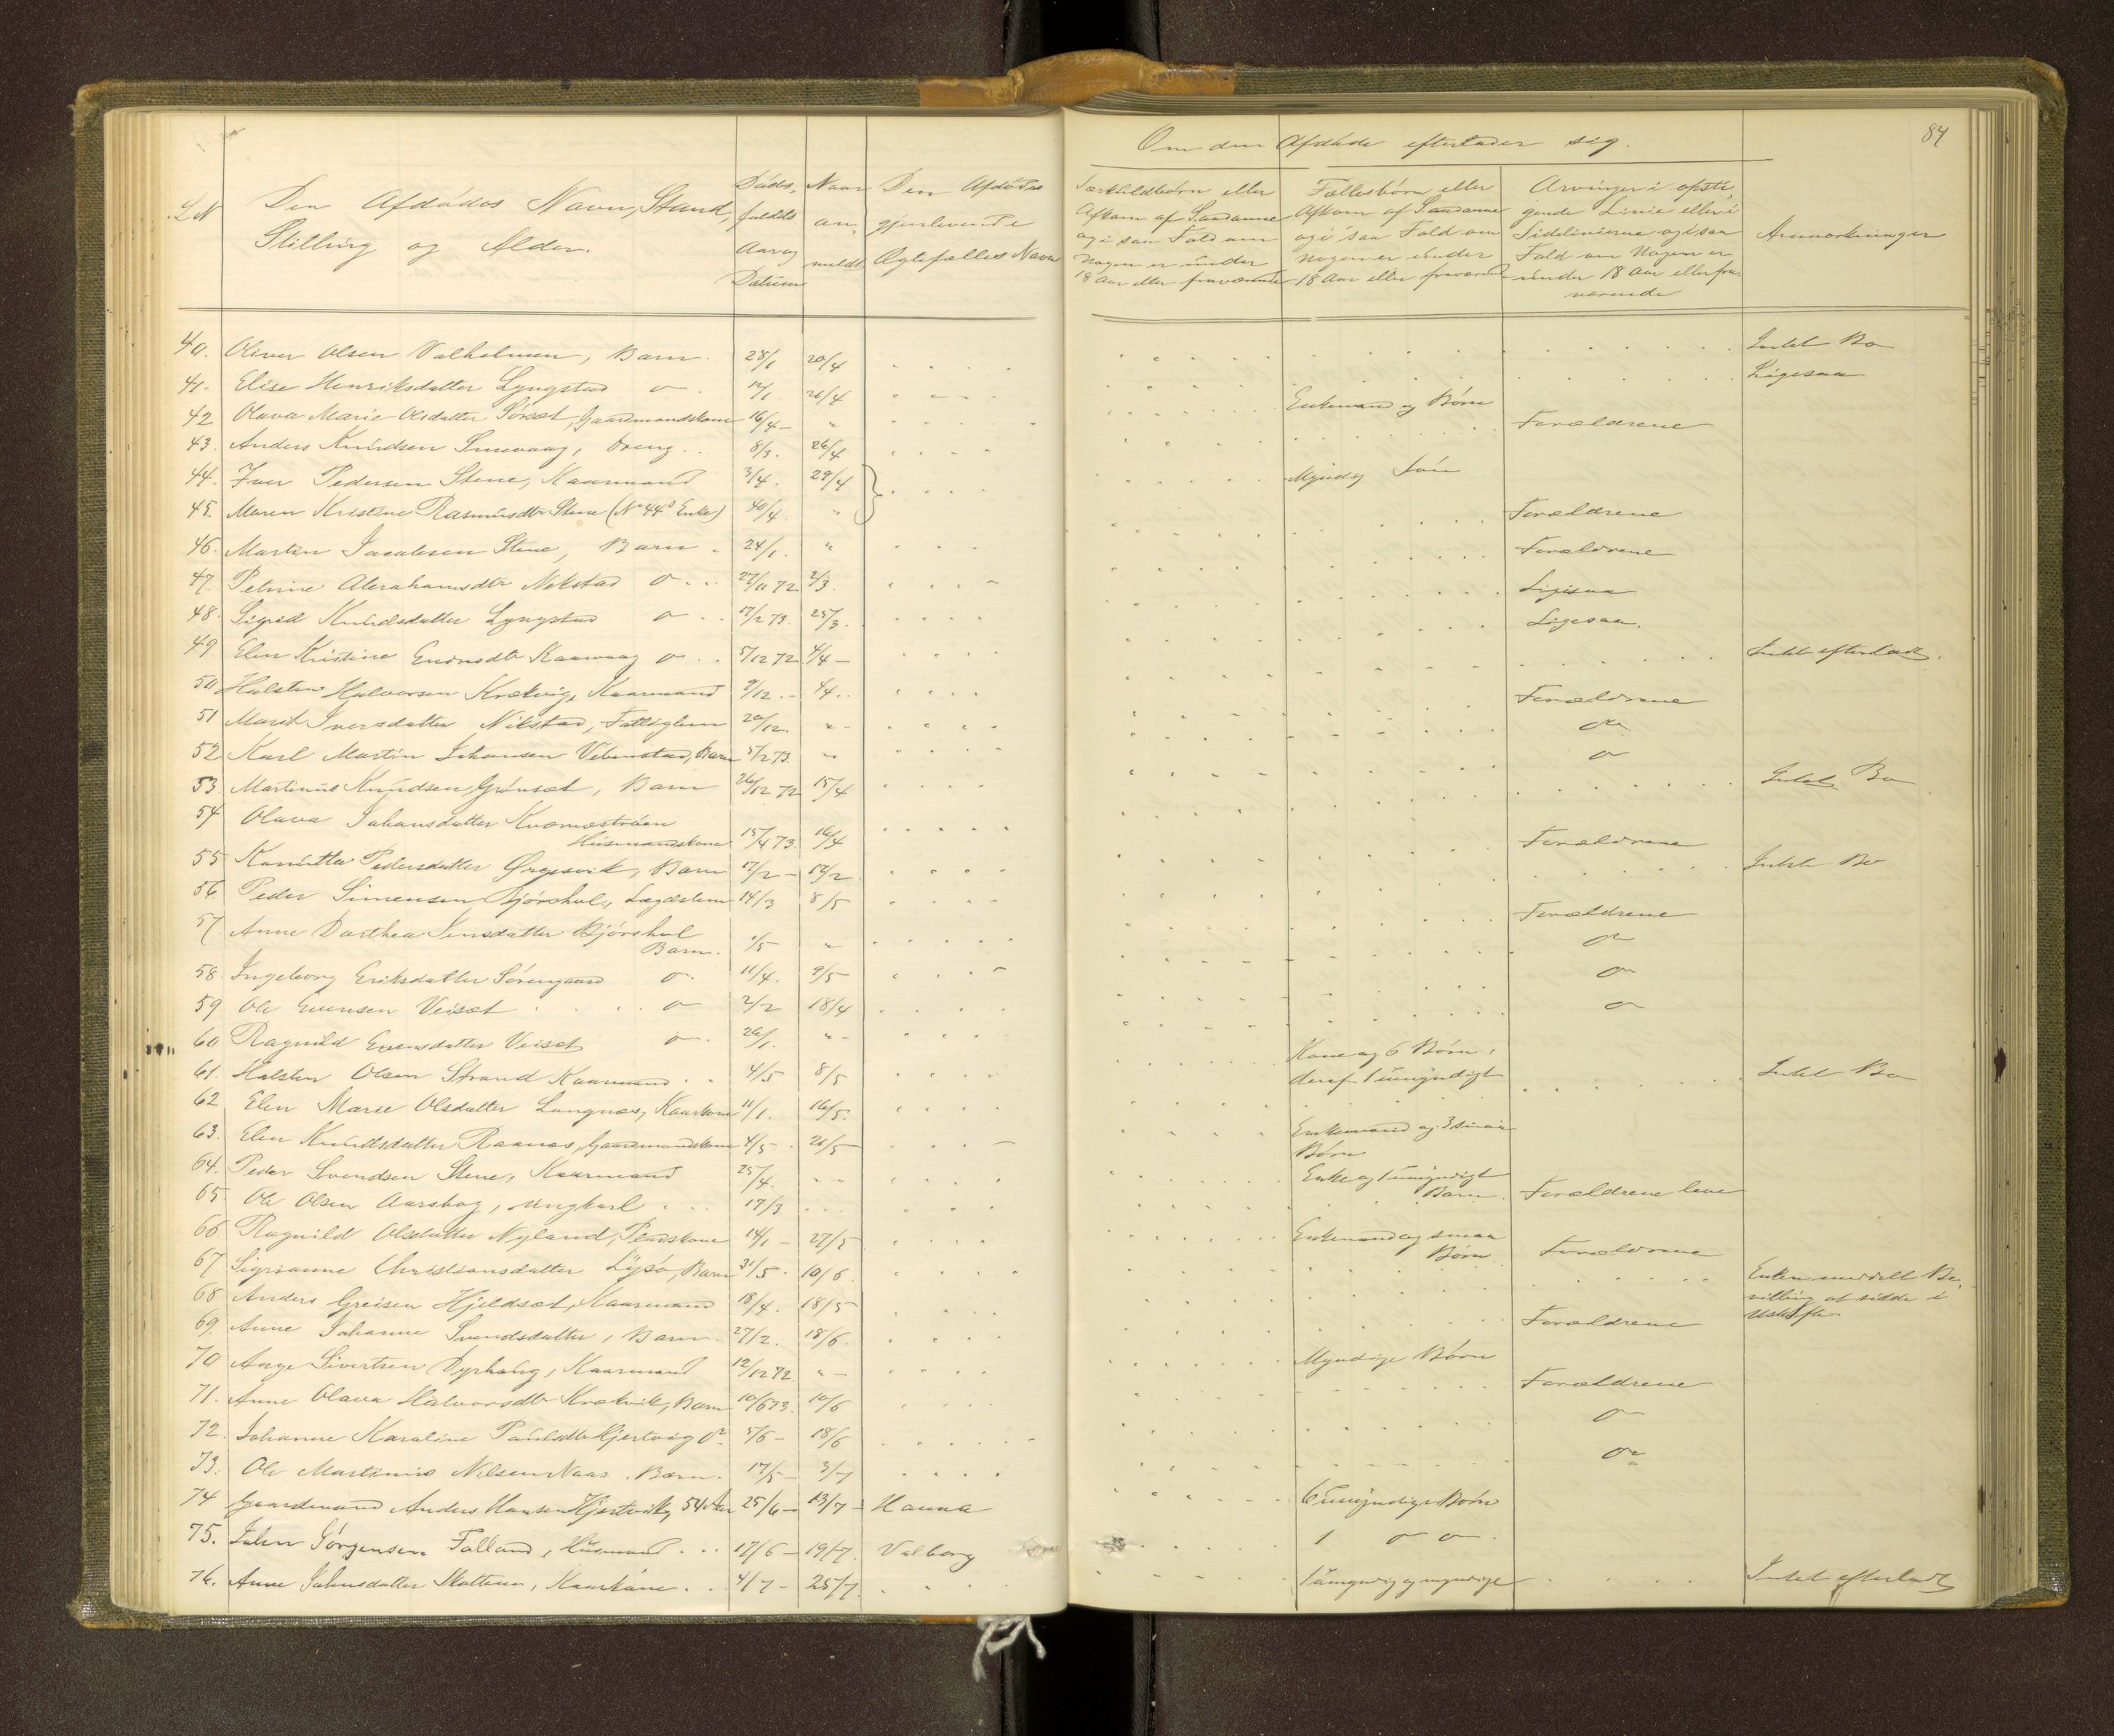 84
Om den Afdøde efterlader sig.
L N
Den Afdødes Navn, Stand, Stilling og Alder.
Dødsfaldets Aar og Datum
Naar anmeldt
Den Afdødes gjenlevende Ægtefælles Navn
Særkuldbørn eller Afkom af Saadanne og i saa Fald om Nogen er under 18 Aar eller fraværende
Fællesbørn eller Afkom af Saadanne og i saa Fald om Nogen er under 18 Aar eller fraværende
Arvinger i opstigende Linie eller i Sidelinierne og i saa Fald om Nogen er under 18 Aar eller fraværende
Anmærkninger
40. Oliver Olsen Valholmen, Barn. 28/1 20/4 Intet Bo
41. Elise Henriksdatter Lyngstad o 12/1 26/4 Ligesaa
42 Olava Marie Olsdatter Sørset, Gaardmandskone 16/4 - " Enkemand og Børn
43. Anders Knudsen Smevaag, Dreng 8/3. 26/4 Forældrene
44. Iver Pedersen Stene, Kaarmand 3/4. 29/4 Myndig Søn
45. Maren Kristine Rasmusdtr Stene (No 44s Enke) 10/4. "
46. Martin Jacobsen Stene, Barn 24/1. " Forældrene
47. Petrine Abrahamsdtr Nekstad o 27/11 72 2/3. Forældrene
48. Sigrid Knudsdatter Lyngstad o 17/2 73. 25/3. Ligesaa
49 Elen Kristine Endresdtr Kaarvaag o 5/12 72 4/4 - Ligesaa.
50 Halsten Halvorsen Krækvig, Kaarmand 9/12. - 4/4. Intet efterladt.
51 Marit Iversdatter Nekstad, Fattiglem 20/12. " - Forældrene
52 Karl Martin Johansen Vebenstad, Barn 5/2 73. " o
53 Martinus Knudsen Grønset, Barn 26/12 72 15/4 o
54 Olava Johansdatter Kværnestrøen
Husmandskone 15/4 73. 16/4 Intet Bo
55 Pedersdatter Ørgesvik, Barn 17/2 - 17/2. Forældrene
56. Peder Simensen Bjørshol, Lægdslem 14/3 8/5 Intet Bo
57. Anne Dorthea Jensdatter Bjørshol
Barn. 1/5 " Forældrene
58. Ingeborg Eriksdatter Sørengaard o 11/4. 9/5 o
59 Ole Evensen Veiset o 2/2 18/4 o
60 Ragnild Evensdatter Veiset o 26/1. " - o
61. Halsten Olsen Strand Kaarmand 4/5 8/5 Kone og 6 Børn,
deraf 1 umyndigt
62 Elen Marie Olsdatter Langnes, Kaarkone 11/1. 16/5. Intet Bo
63. Elen Knudsdatter Raanes, Gaardmandskone 4/5 21/5 Enkemand og 3 smaa
Børn
64. Peder Svendsen Stene, Kaarmand 25/4. Enke og 1 umyndigt
Barn.
65. Ole Olsen Aarsbog, Ungkarl 17/3 Forældrene leve
66. Ragnild Olsdatter Nyland, Pladskone 14/1 - 27/5 Enkemand og smaa
Børn
67. Sigrianne Christiansdatter Lysø, Barn 31/5. 10/6. Forældrene
68 Anders Greisen Hjeldset, Kaarmand 18/4. 18/5 Enken meddelt Bevilling at sidde i Uskifte
69. Anne Johanna Svendsdatter, Barn. 27/2. 18/6. Forældrene
70 Aage Sivertsen Dyrhaug, Kaarmand 12/12 72 " - Myndige Børn
71. Anne Olava Halvorsdtr Krækvik, Barn 10/6 73. 10/6 Forældrene
72. Johanne Karoline Paulsdtr Hjertvig do 5/6 - 18/6 o
73. Ole Martinus Nilsen Naas. Barn. 17/5 - 3/7 do
74 Gaardmand Anders Hansen Hjertvik, 54 Aar 25/6 - 13/7 - Hanna 6 umyndige Børn
75. John Jørgensen Folland, Husmand 17/6 - 19/7. Valborg 1 o o
76. Anne Johnsdatter Skottem, Kaarkone 4/7 - 25/7. 1 umyndig og myndige Intet efterladt